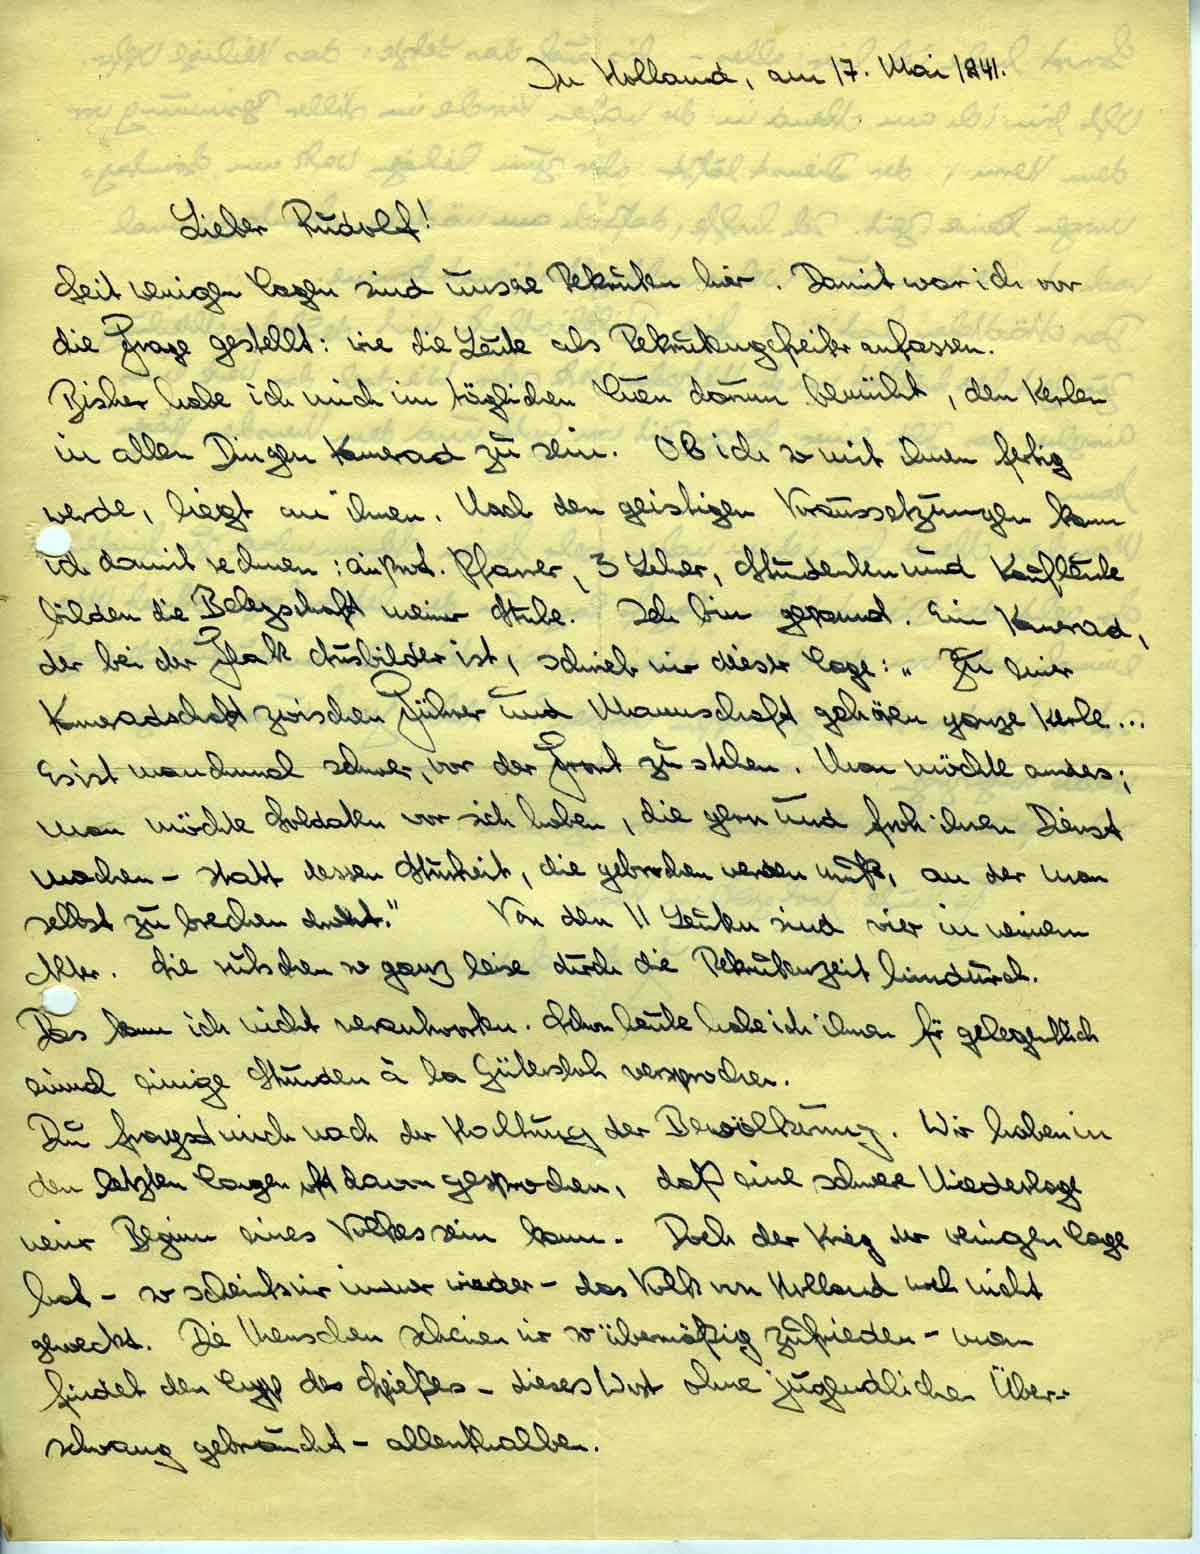 In Holland, am 17. Mai 1941.
Lieber Rudolf!
Seit wenigen Tagen sind unsre Rekruten hier. Damit war ich vor
die Frage gestellt: wie die Leute als Rekrutengefreiter anfassen.
Bisher habe ich mich im täglichen Tun darum bemüht, den Kerlen
in allen Dingen Kamerad zu sein. Ob ich so mit ihnen fertig
werde, liegt an ihnen. Nach den geistigen Voraussetzungen kann
ich damit rechnen: Pfarrer, 3 Lehrer, Studenten und Kaufleute
bilden die Belegschaft meiner Stube. Ich bin gespannt. Ein Kamerad,
der bei der Flak Ausbilder ist, schrieb mir dieser Tage: „Zu einer
Kameradschaft zwischen Führer und Mannschaft gehören ganze Kerle...
Es ist manchmal schwer, vor der Front zu stehen. Man möchte andres;
man möchte Soldaten vor sich haben, die gern und froh ihren Dienst
machen - statt dessen Sturheit, die gebrochen werden muß, an der man
selbst zu brechen droht." Von den 11 Leuten sind vier in meinem
Alter. Sie rutschen so ganz leise durch die Rekrutenzeit hindurch.
Das kann ich nicht verantworten. Schon heute habe ich ihnen für gelegentlich
einmal einige Stunden à la Gütersloh versprochen.
Du fragst mich nach der Haltung der Bevölkerung. Wir haben in
den letzten Tagen oft davon gesprochen, daß eine schwere Niederlage
Beginn eines Volkes sein kann. Doch der Krieg der wenigen Tage
hat - so scheint's mir immer wieder - das Volk von Holland noch nicht
geweckt. Die Menschen scheinen mir so übermäßig zufrieden - man
findet den Typ des Spießes - dieses Wort ohne jugendlichen Über-
schwang gebraucht - allenthalben.